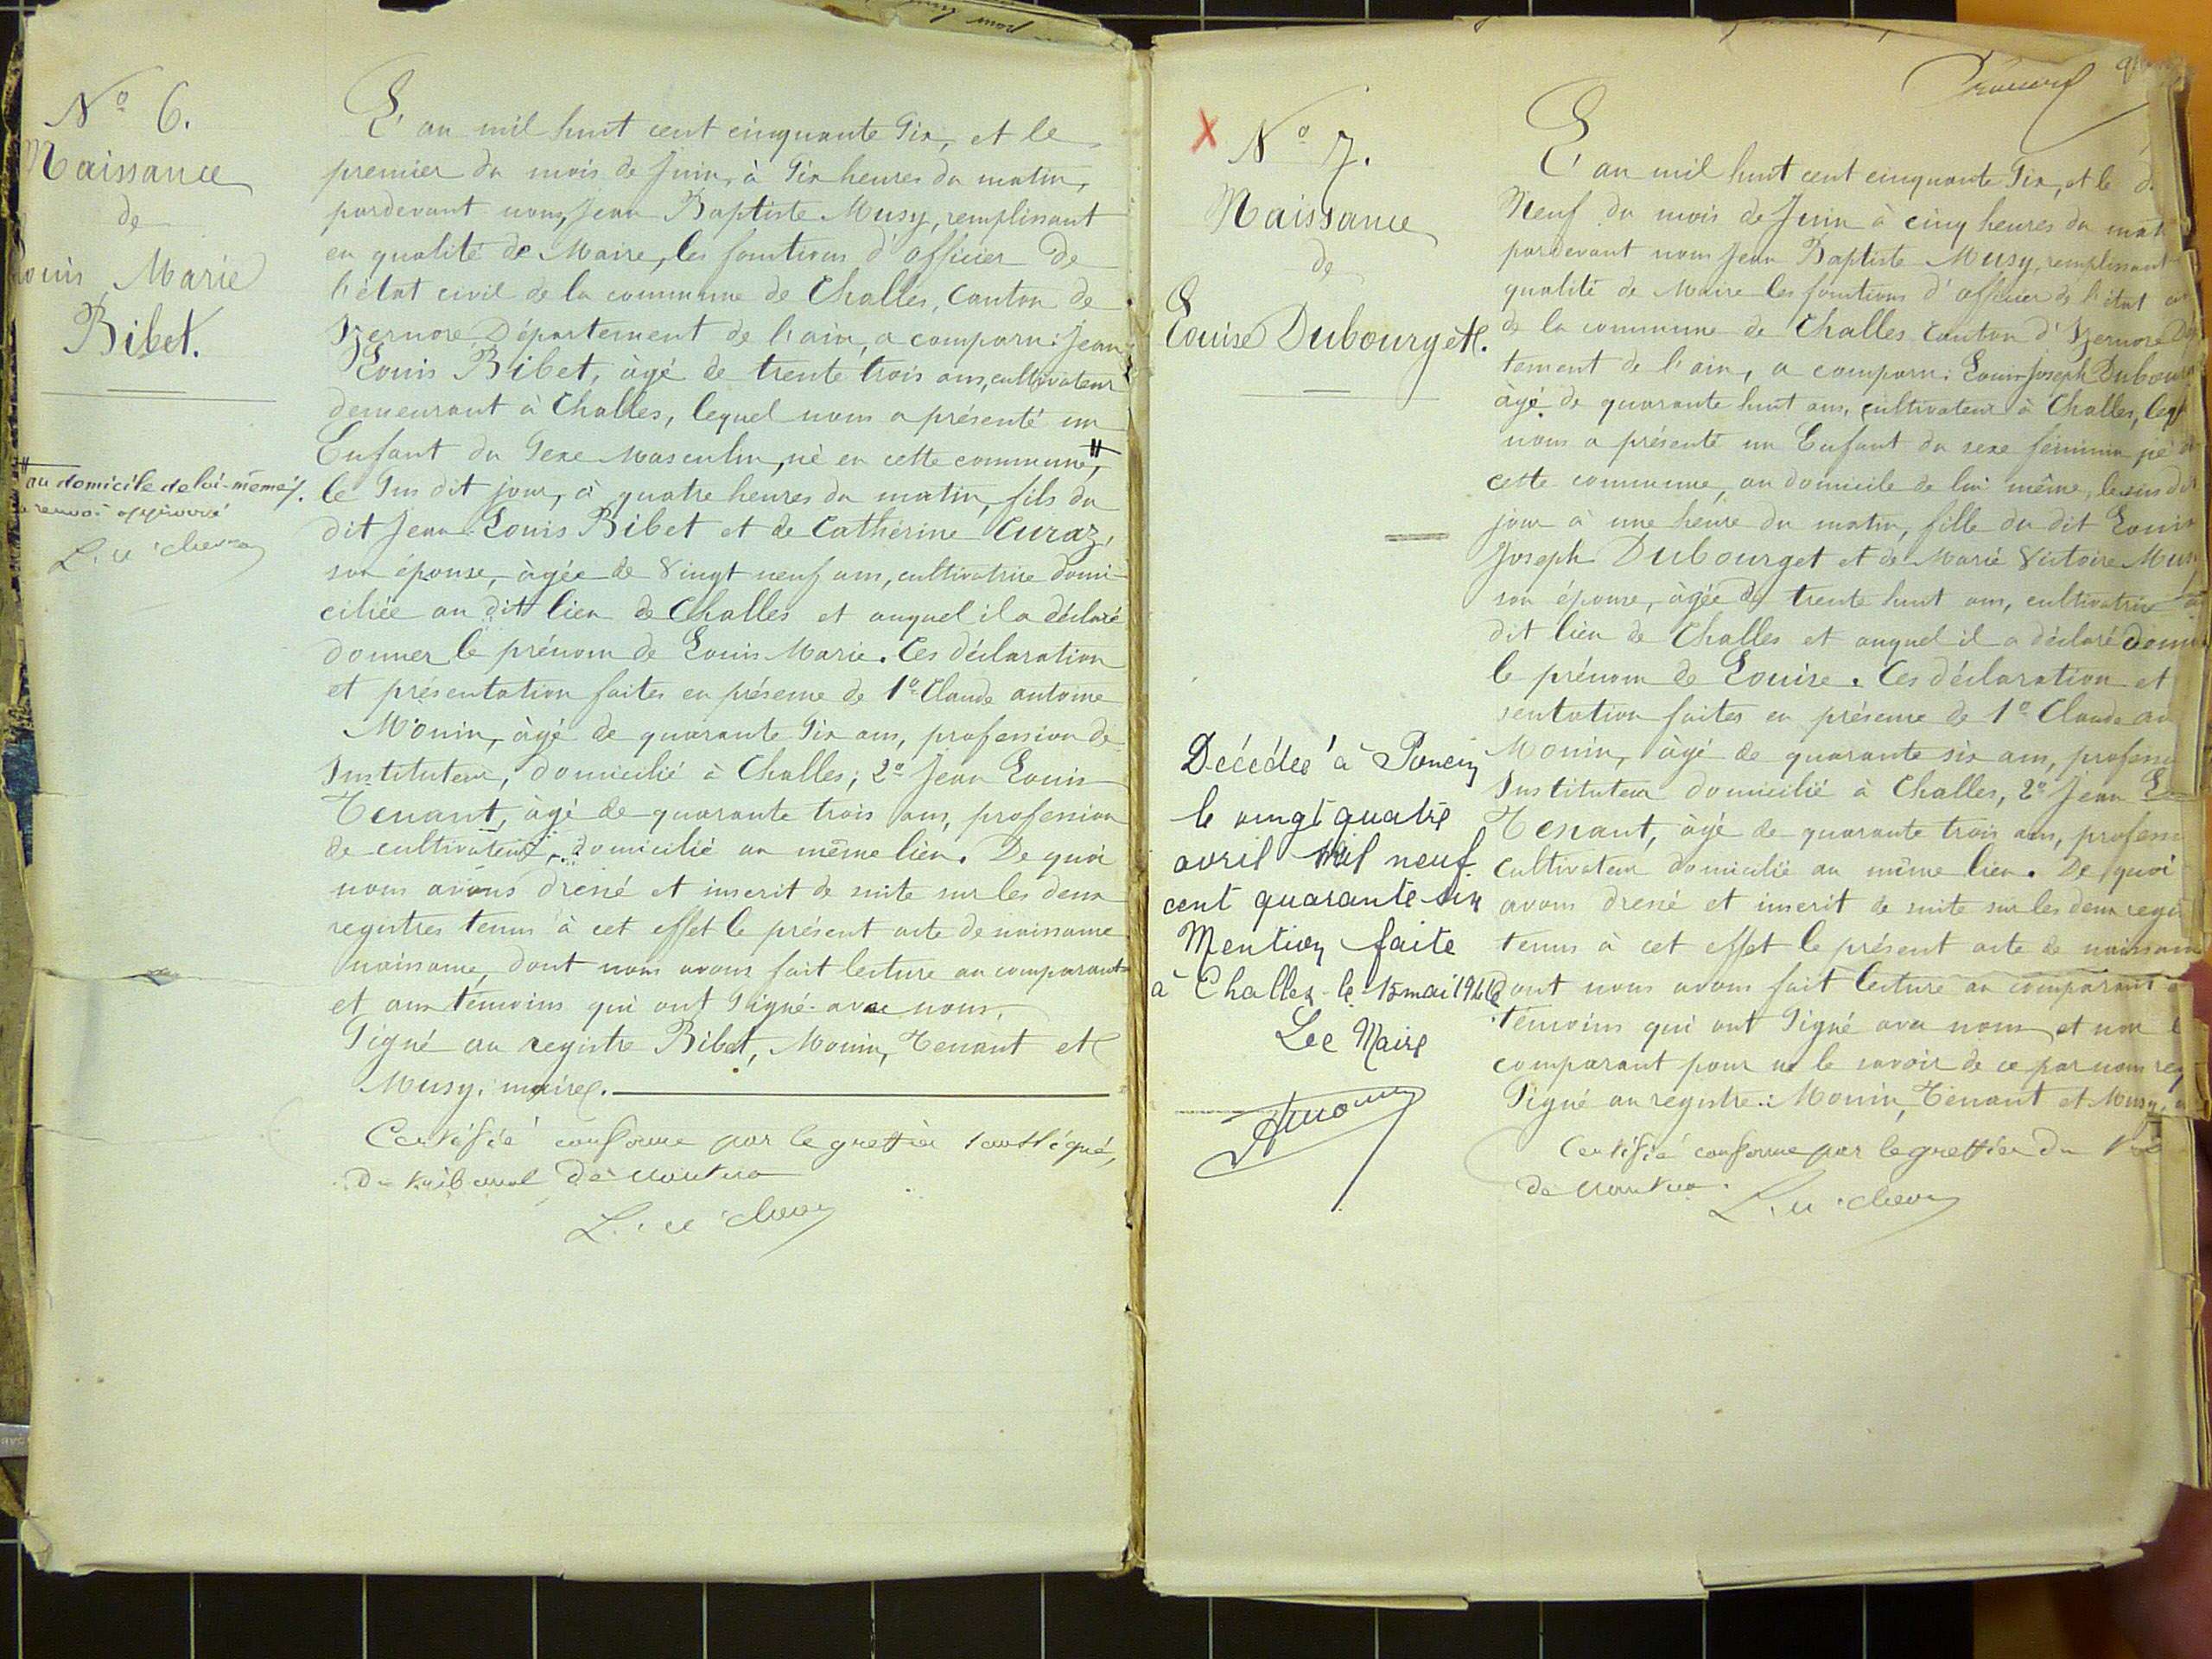 pour
N° 6.
Naissance
de
Louis Marie
Bibet.
au domicile de lui-même.
renvoi approuvé
L'an mil huit cent cinquante six, et le
premier du mois de Juin, à six heures du matin,
pardevant nous, Jean Baptiste Musy, remplissant
en qualité de Maire, les fonctions d'officier de
l'état civil de la commune de Challes, canton de
Izernore, Département de l'ain, a comparu: Jean
Louis Bibet, âgé de trente trois ans, cultivateur
demeurant à Challes, lequel nous a présenté un
Enfant du sexe Masculin, né en cette commune,
le sus dit jour, à quatre heures du matin, fils du
dit Jean Louis Bibet et de Cathérine Curaz,
son épouse, âgée de vingt neuf ans, cultivatrice domi-
ciliée au dit lieu de Challes et auquel il a déclaré
donner le prénom de Louis Marie. Ces déclaration
et présentation faites en présence de 1° Claude antoine
Monin, âgé de quarante six ans, profession de
Instituteur, domicilié à Challes; 2° Jean Louis
Tenant, âgé de quarante trois ans, profession
de cultivateur, domicilié au même lieu. De quoi
nous avons dressé et inscrit de suite sur les deux
registres tenus à cet effet le présent acte de naissance
naissance, dont nous avons fait lecture au comparant
et aux témoins qui ont signé avec nous.
Signé au registre Bibet, Monin, Tenant et
Musy, maire.
Certifié conforme par le greffier soussigné,
du tribunal de Nantua
N° 7.
Naissance
de
Louise Dubourget.
Décédée à Poncin
le vingt quatre
avril mil neuf
cent quarante six
Mention faite
à Challes le 15 mai 1946
Le Maire
L'an mil huit cent cinquante six, et le
Neuf du mois de Juin à cinq heures du mat
pardevant nous Jean Baptiste Musy, remplissant
qualité de Maire les fonctions d'officier de l'état
de la commune de Challes canton d'Izernore Dép
tement de l'ain, a comparu: Louis Joseph Dubour
âgé de quarante huit ans, cultivateur à Challes, leq
nous a présenté un Enfant du sexe féminin né
cette commune, au domicile de lui même, le sus dit
jour à une heure du matin, fille du dit Louis
Joseph Dubourget et de Marie Victoire Musy
son épouse, âgée de trente huit ans, cultivatrice
dit lieu de Challes et auquel il a déclaré donner
le prénom de Louise. Ces déclaration et
sentation faites en présence de 1° Claude an
Monin, âgé de quarante six ans, profess
Instituteur domicilié à Challes, 2° Jean
Tenant, âgé de quarante trois ans, profess
cultivateur domicilié au même lieu. De quoi
avons dressé et inscrit de suite sur les deux regis
tenus à cet effet le présent acte de naissance
dont nous avons fait lecture au comparant
témoins qui ont signé avec nous et non
comparant pour ne le savoir de ce par nous req
Signé au registre: Monin, Tenant et Musy,
Certifié conforme par le greffier du
de Nantua.